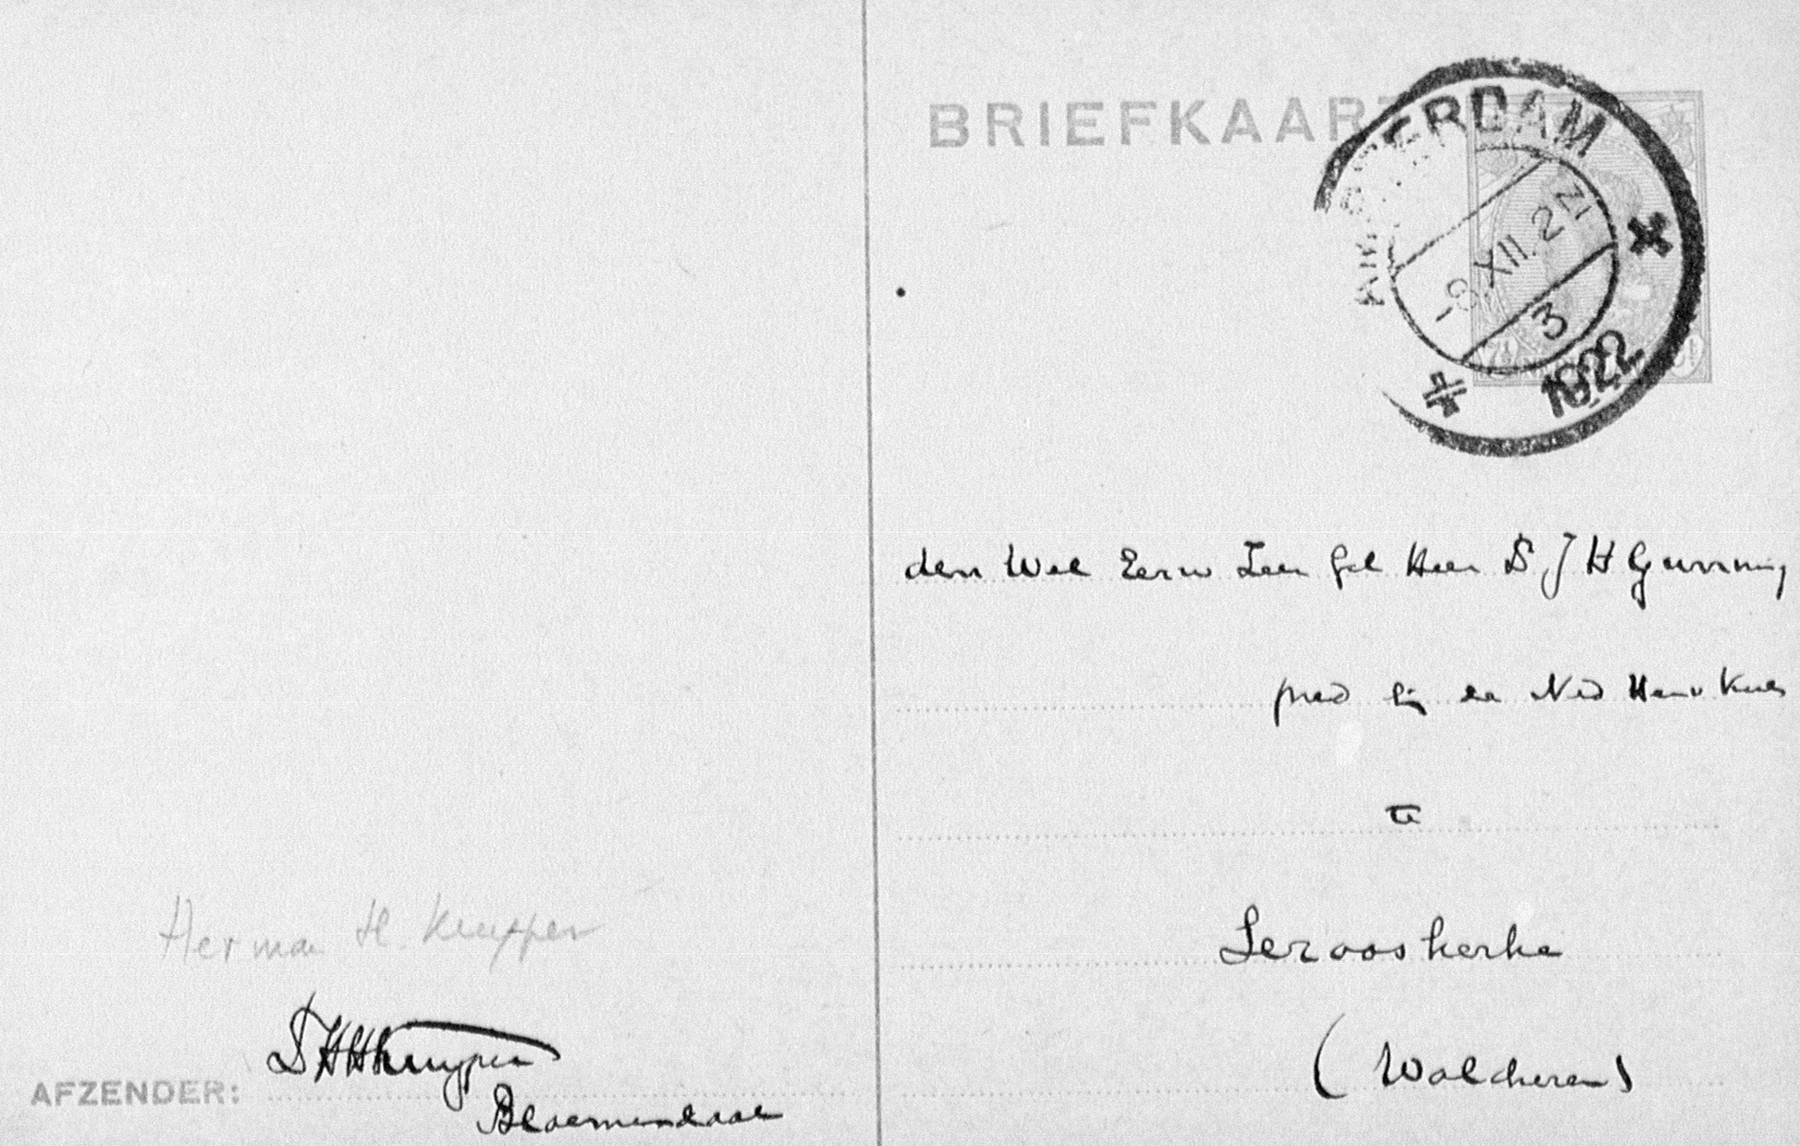 BRIEFKAART
AMSTERDAM
-8.XII. 2 N
3
1922
den Wel Eerw Zeer Gel Heer Ds J H Gunning
pred bij de Ned Herv Kerk
te
Serooskerke
(Walcheren)
Herman H. Kuyper
Ds H H Kuyper
AFZENDER:
Bloemendaal